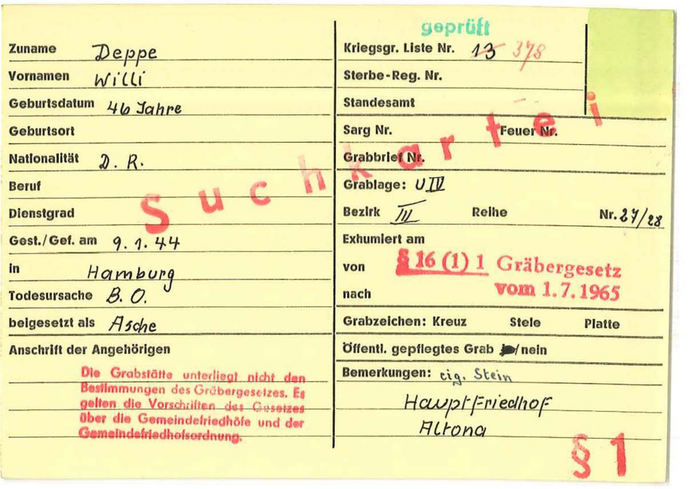 geprüft
Zuname Deppe
Vornamen Willi
Geburtsdatum 46 Jahre
Geburtsort
Nationalität D. R.
Beruf
Dienstgrad
Gest./Gef. am 9. 1. 44
in Hamburg
Todesursache B. O.
beigesetzt als Asche
Anschrift der Angehörigen
Die Grabstätte unterliegt nicht den
Bestimmungen des Gräbergesetzes. Es
gelten die Vorschriften des Gesetzes
über die Gemeindefriedhöfe und der
Gemeindefriedhofsordnung.
Suchkartei
Kriegsgr. Liste Nr. 13 378
Sterbe-Reg. Nr.
Standesamt
Sarg Nr. Feuer Nr.
Grabbrief Nr.
Grablage: U IV
Bezirk III Reihe Nr. 27/28
Exhumiert am
von
nach
§ 16 (1) 1 Gräbergesetz
vom 1.7.1965
Grabzeichen: Kreuz Stele Platte
Öffentl. gepflegtes Grab /nein
Bemerkungen: eig. Stein
Hauptfriedhof
Altona
§ 1